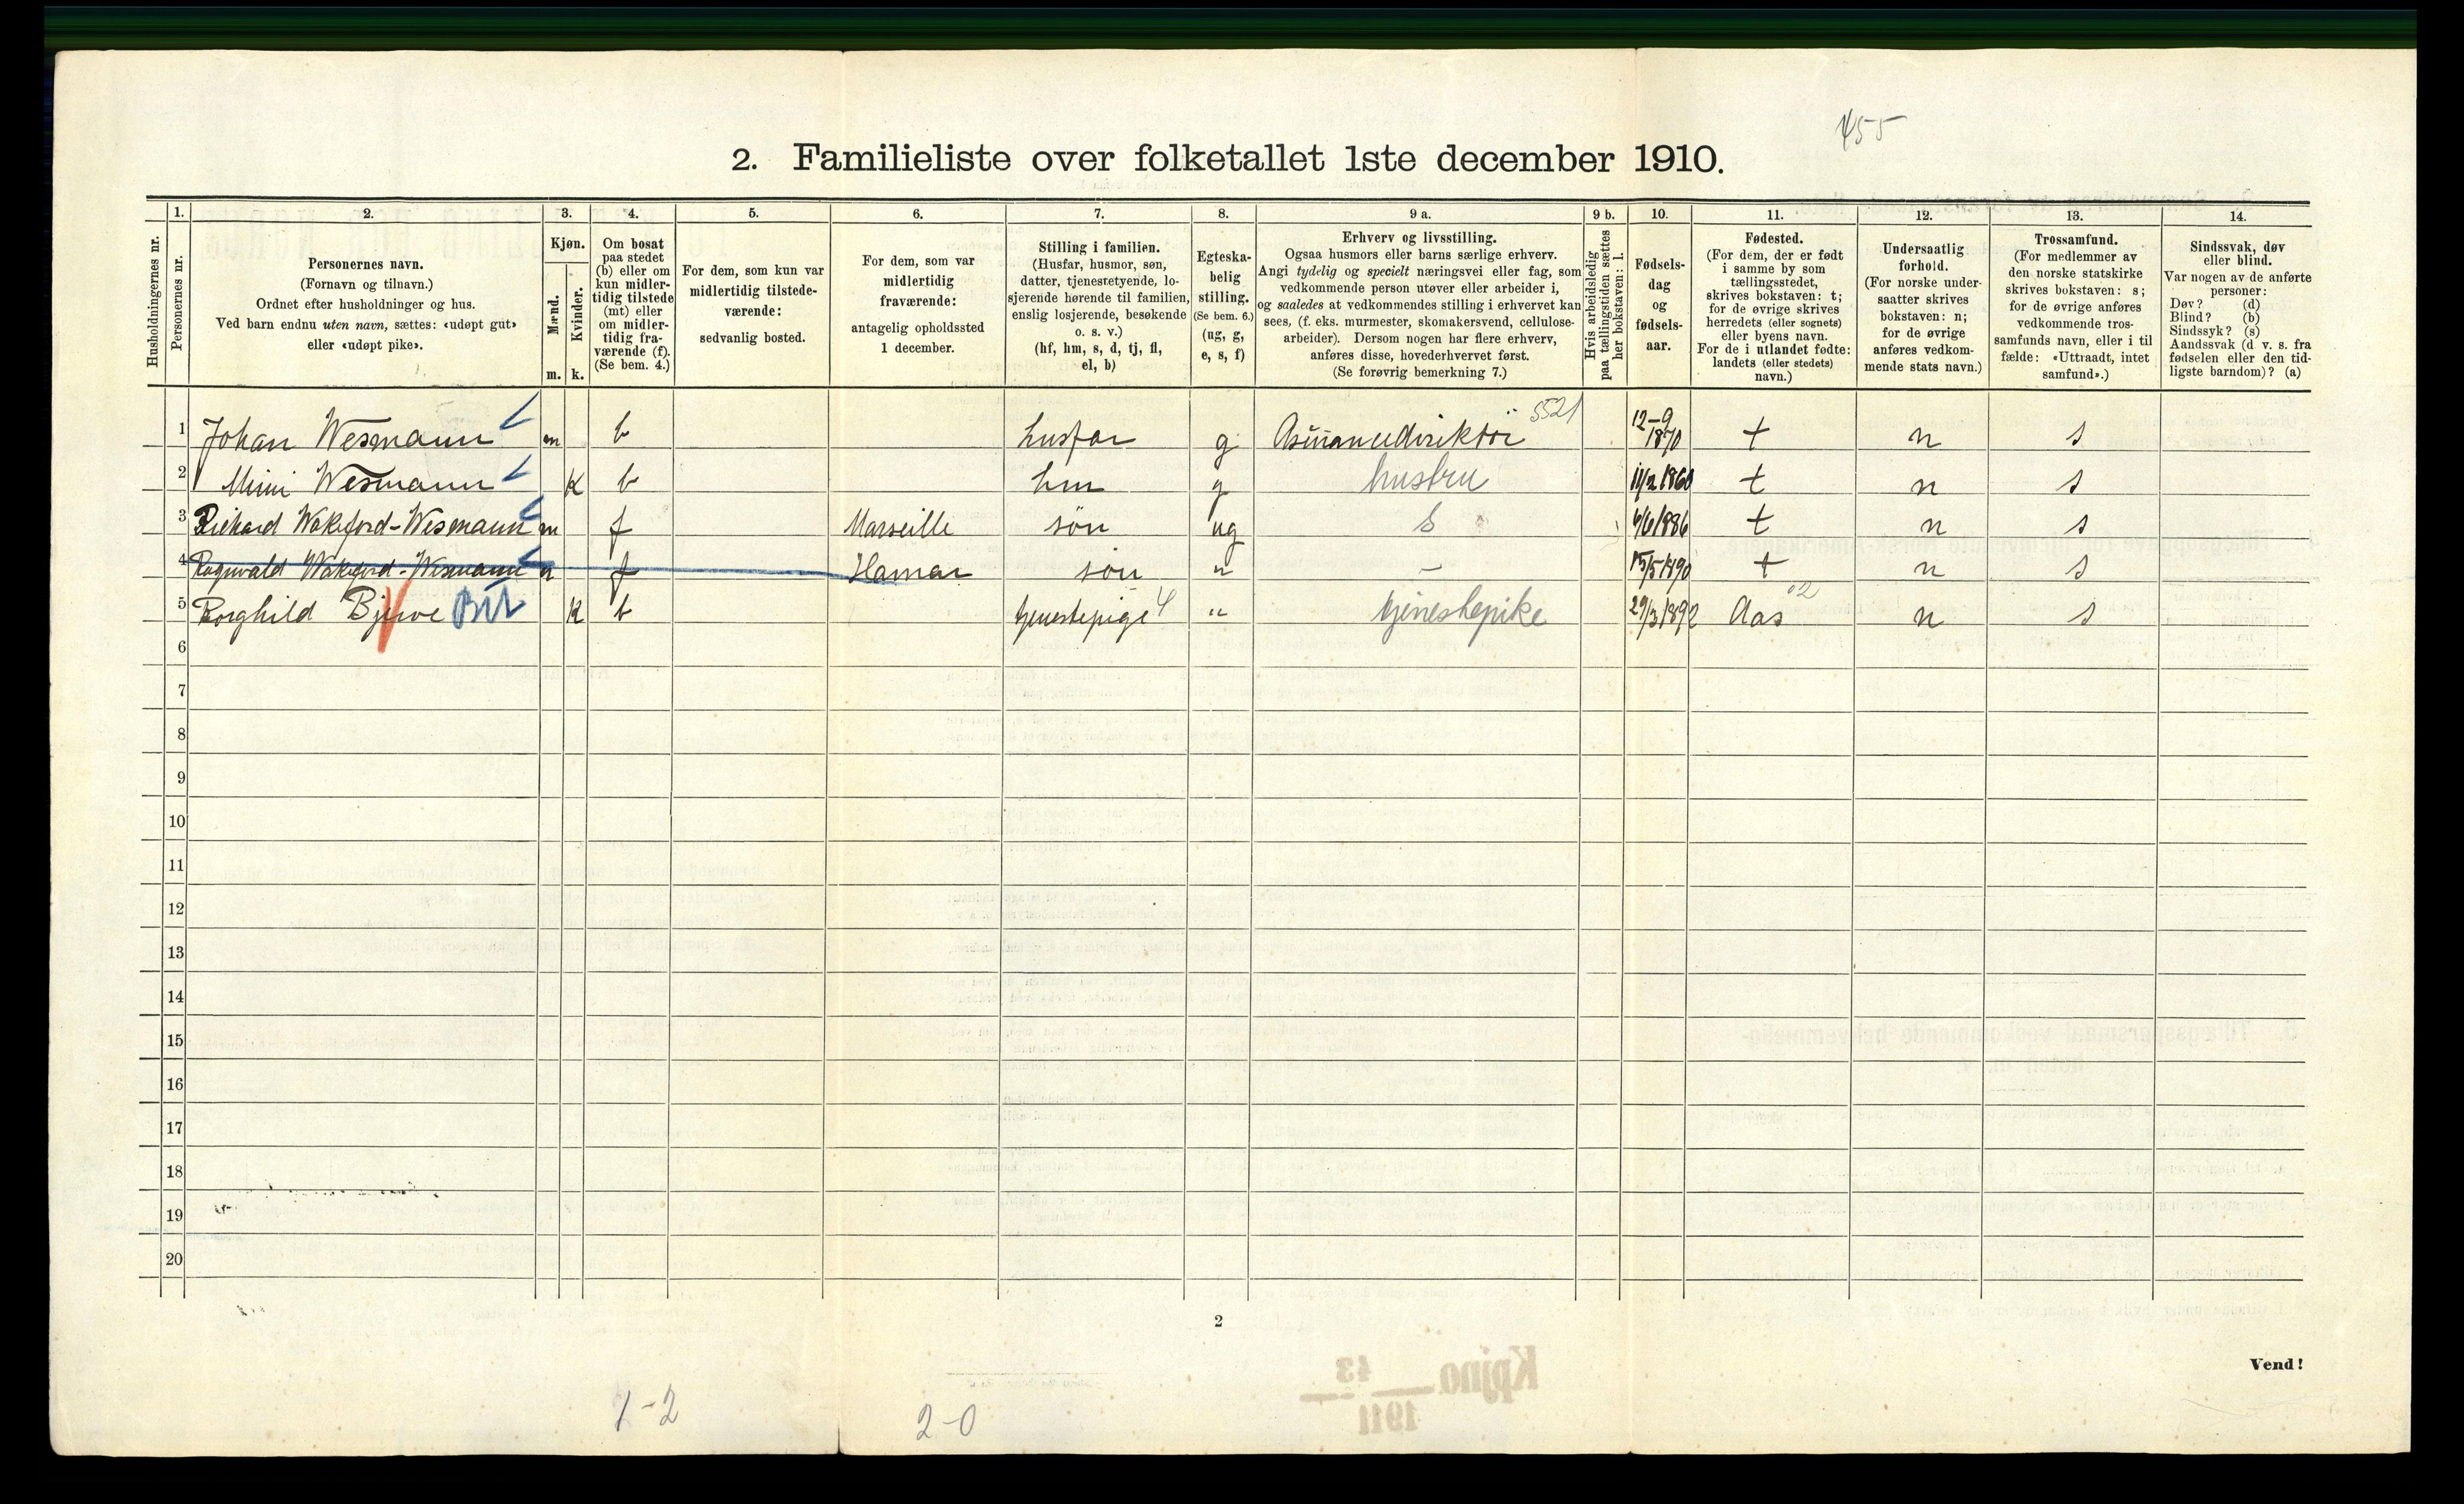 455
2. Familieliste over folketallet 1ste december 1910.
Husholdningernes nr.
1. Personernes nr.
2. Personernes navn.
(Fornavn og tilnavn.)
Ordnet efter husholdninger og hus.
Ved barn endnu uten navn, sættes: «udøpt gut»
eller «udøpt pike».
3. Kjøn.
Mænd. m.
Kvinder. k.
4. Om bosat
paa stedet
(b) eller om
kun midler-
tidig tilstede
(mt) eller
om midler-
tidig fra-
værende (f).
(Se bem. 4.)
5. For dem, som kun var
midlertidig tilstede-
værende:
sedvanlig bosted.
6. For dem, som var
midlertidig
fraværende:
antagelig opholdssted
1 december.
7. Stilling i familien.
(Husfar, husmor, søn,
datter, tjenestetyende, lo-
sjerende hørende til familien,
enslig losjerende, besøkende
o. s. v.)
(hf, hm, s, d, tj, fl,
el, b)
8. Egteska-
belig
stilling.
(Se bem. 6.)
(ug, g,
e, s, f)
9 a. Erhverv og livsstilling.
Ogsaa husmors eller barns særlige erhverv.
Angi tydelig og specielt næringsvei eller fag, som
vedkommende person utøver eller arbeider i,
og saaledes at vedkommendes stilling i erhvervet kan
sees, (f. eks. murmester, skomakersvend, cellulose-
arbeider). Dersom nogen har flere erhverv,
anføres disse, hovederhvervet først.
(Se forøvrig bemerkning 7.)
9 b. Hvis arbeidsledig
paa tællingstiden sættes
her bokstaven: l.
10. Fødsels-
dag
og
fødsels-
aar.
11. Fødested.
(For dem, der er født
i samme by som
tællingsstedet,
skrives bokstaven: t;
for de øvrige skrives
herredets (eller sognets)
eller byens navn.
For de i utlandet fødte:
landets (eller stedets)
navn.)
12. Undersaatlig
forhold.
(For norske under-
saatter skrives
bokstaven: n;
for de øvrige
anføres vedkom-
mende stats navn.)
13. Trossamfund.
(For medlemmer av
den norske statskirke
skrives bokstaven: s;
for de øvrige anføres
vedkommende tros-
samfunds navn, eller i til
fælde: «Uttraadt, intet
samfund».)
14. Sindssvak, døv
eller blind.
Var nogen av de anførte
personer:
Døv? (d)
Blind? (b)
Sindssyk? (s)
Aandssvak (d v. s. fra
fødselen eller den tid-
ligste barndom)? (a)
1 Johan Wesmann m b husfar g 5521 12-9 1870 t n s
2 Mimi Wesmann k b hm g hustru 11/2 1860 t n s
3 Richard Wakeford-Wesmann m f Marseille søn ug s 6/6 1886 t n s
4 Ragnvald Wakeford-Wesmann m f Hamar søn " - 15/5 1890 t n s
5 Borghild Bjerve k b tjenestepige 4 " tjenestepike 29/3 1892 Aas 02 n s
6
7
8
9
10
11
12
13
14
15
16
17
18
19
20
2
Vend!
1-2
2-0
Kpjno 43
1911